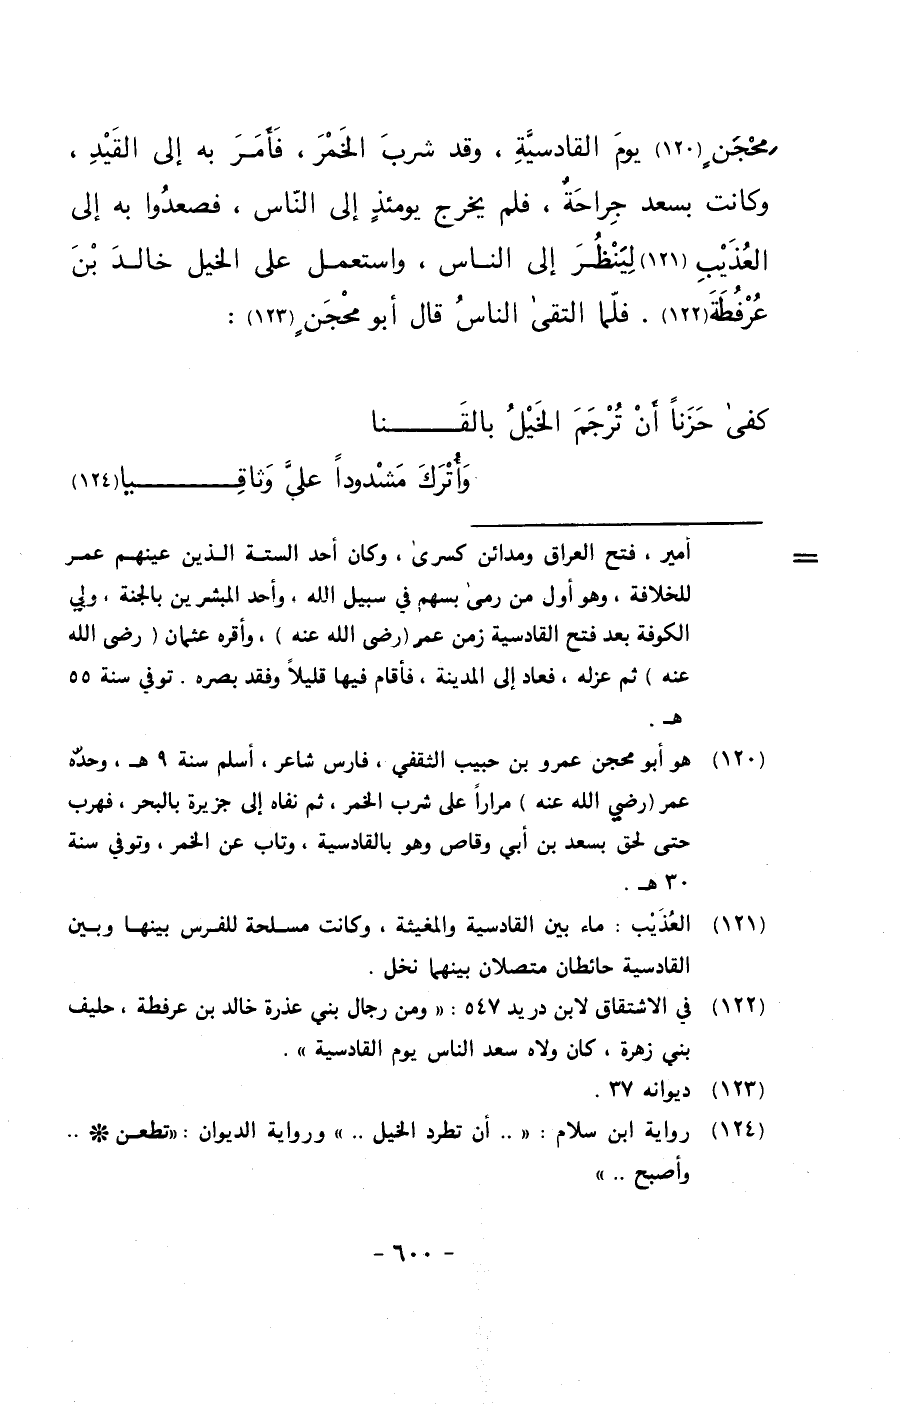 محْجَنٍ (١٢٠) يومَ القادسيَّةِ ، وقد شربَ الخَمْرَ ، فَأَمَرَ به إلى القَيْدِ ،
وكانت بسعد جِراحَةٌ ، فلم يخرج يومئذٍ إلى النّاس ، فصعدُوا به إلى
العُذَيْبِ (١٢١) لِيَنْظُرَ إلى الناس ، واستعمل على الخيل خالدَ بْنَ
عُرْفُطَةَ (١٢٢) . فلّما التقىٰ الناسُ قال أبو محْجَنٍ (١٢٣) :
كفىٰ حَزَناً أَنْ تُرْجَمَ الخَيْلُ بالقَــــــنا
وَأُتْرَكَ مَشْدوداً عليَّ وَثاقِــــــــيا (١٢٤)
= أمير ، فتح العراق ومدائن كسرىٰ ، وكان أحد الستة الذين عينهم عمر
للخلافة ، وهو أول من رمىٰ بسهم في سبيل الله ، وأحد المبشرين بالجنة ، ولي
الكوفة بعد فتح القادسية زمن عمر (رضي الله عنه ) ، وأقره عثمان ( رضي الله
عنه ) ثم عزله ، فعاد إلى المدينة ، فأقام فيها قليلاً وفقد بصره . توفي سنة ٥٥
هـ .
(١٢٠) هو أبو محجن عمرو بن حبيب الثقفي ، فارس شاعر ، أسلم سنة ٩ هـ ، وحدّه
عمر (رضي الله عنه ) مراراً على شرب الخمر ، ثم نفاه إلى جزيرة بالبحر ، فهرب
حتى لحق بسعد بن أبي وقاص وهو بالقادسية ، وتاب عن الخمر ، وتوفي سنة
٣٠ هـ .
(١٢١) العُذَيْب : ماء بين القادسية والمغيثة ، وكانت مسلحة للفرس بينها وبين
القادسية حائطان متصلان بينهما نخل .
(١٢٢) في الاشتقاق لابن دريد ٥٤٧ : « ومن رجال بني عذرة خالد بن عرفطة ، حليف
بني زهرة ، كان ولاه سعد الناس يوم القادسية » .
(١٢٣) ديوانه ٣٧ .
(١٢٤) رواية ابن سلام : « .. أن تطرد الخيل .. » ورواية الديوان : «تطعن * ..
وأصبح .. »
- ٦٠٠ -